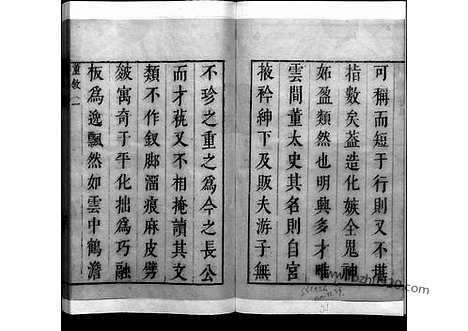 可稱而短于行則又不堪
指數矣葢造化嫉全鬼神
妬盈類然也明興多才唯
雲間董太史其名則自宮
掖衿紳下及販夫游子無
不珍之重之爲今之長公
而才蓺又不相掩讀其文
類不作釵脚漏痕麻皮劈
皴寓奇于平化拙爲巧融
板爲逸飄然如雲中鶴澹
董敘 二